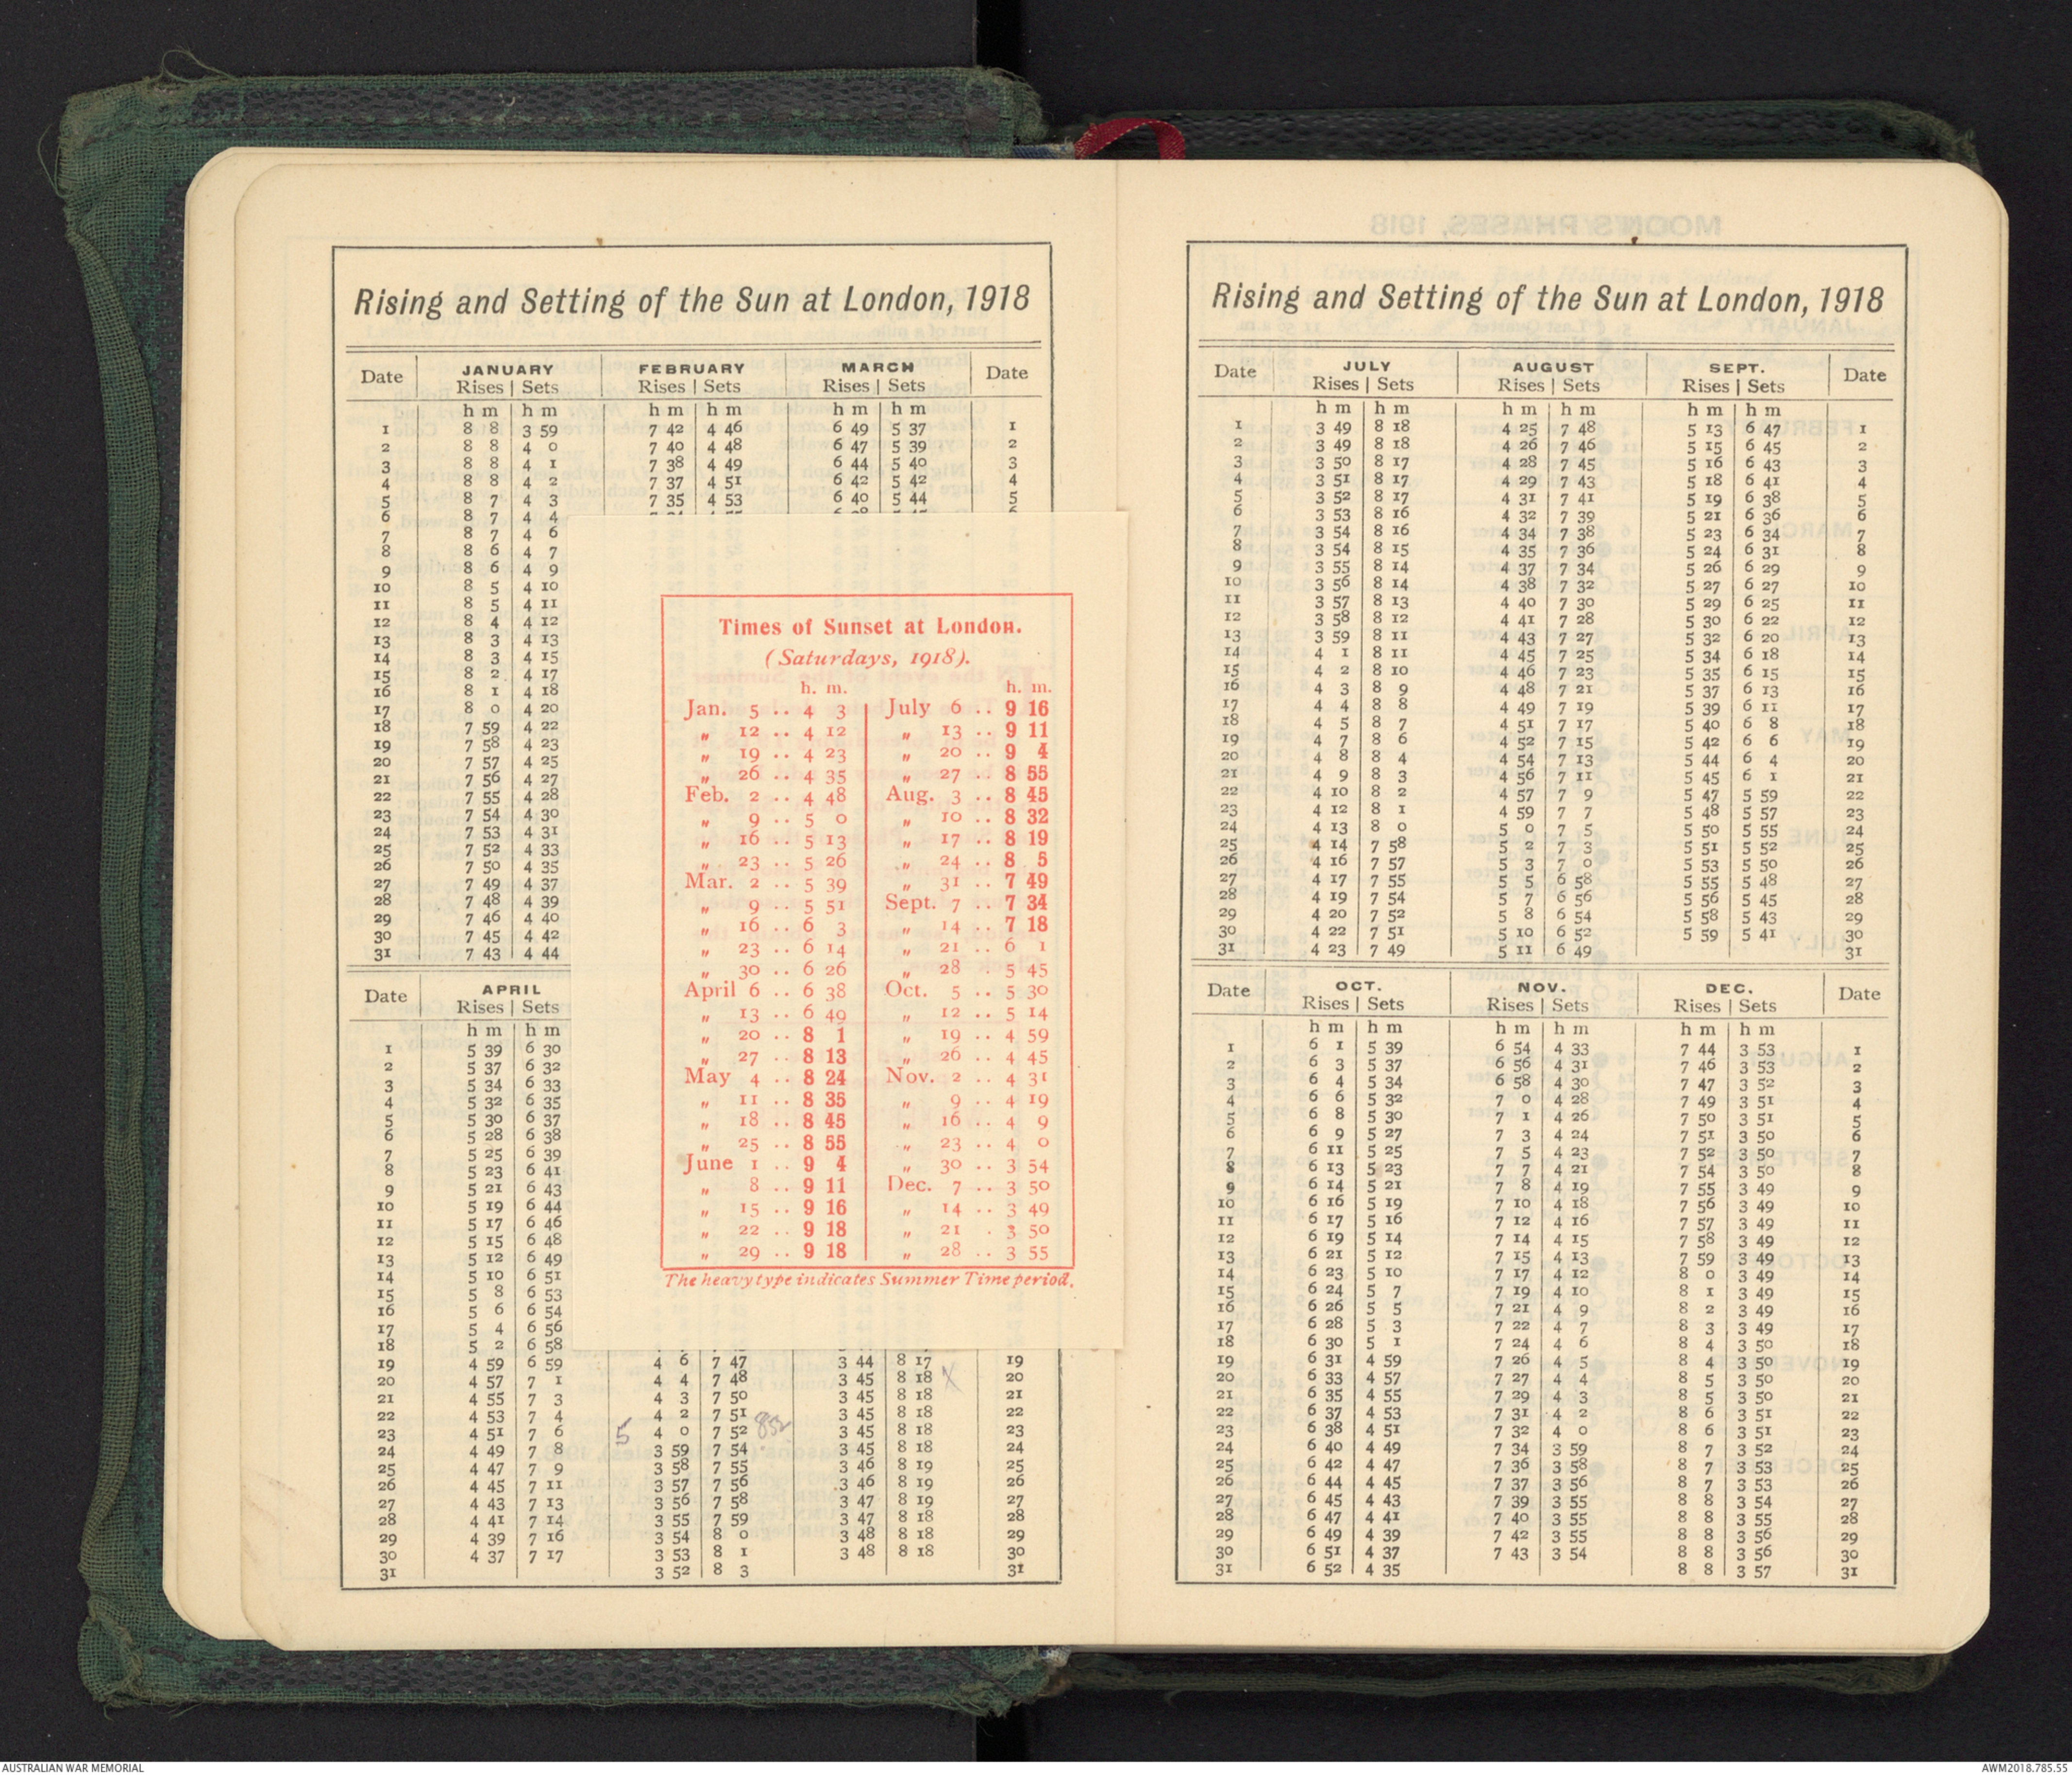 Rising and Setting of the Sun at London, 1918
Date JANUARY FEBRUARY MARCH Date
Rises | Sets Rises | Sets Rises | Sets
h m h m h m h m h m h m
1 8 8 3 59 7 42 4 46 6 49 5 37 1
2 8 8 4 0 7 40 4 48 6 47 5 39 2
3 8 8 4 1 7 38 4 49 6 44 5 40 3
4 8 8 4 2 7 37 4 51 6 42 5 42 4
5 8 7 4 3 7 35 4 53 6 40 5 44 5
6 8 7 4 4
7 8 7 4 6
8 8 6 4 7
9 8 6 4 9
10 8 5 4 10
11 8 5 4 11
12 8 4 4 12
13 8 3 4 13
14 8 3 4 15
15 8 2 4 17
16 8 1 4 18
17 8 0 4 20
18 7 59 4 22
19 7 58 4 23
20 7 57 4 25
21 7 56 4 27
22 7 55 4 28
23 7 54 4 30
24 7 53 4 31
25 7 52 4 33
26 7 50 4 35
27 7 49 4 37
28 7 48 4 39
29 7 46 4 40
30 7 45 4 42
31 7 43 4 44
Date APRIL
Rises | Sets
h m h m
1 5 39 6 30
2 5 37 6 32
3 5 34 6 33
4 5 32 6 35
5 5 30 6 37
6 5 28 6 38
7 5 25 6 39
8 5 23 6 41
9 5 21 6 43
10 5 19 6 44
11 5 17 6 46
12 5 15 6 48
13 5 12 6 49
14 5 10 6 51
15 5 8 6 53
16 5 6 6 54
17 5 4 6 56
18 5 2 6 58
19 4 59 6 59 4 6 7 47 3 44 8 17 19
20 4 57 7 1 4 4 7 48 3 45 8 18 X 20
21 4 55 7 3 4 3 7 50 3 45 8 18 21
22 4 53 7 4 4 2 7 51 3 45 8 18 22
23 4 51 7 6 5 4 0 7 52 852 3 45 8 18 23
24 4 49 7 8 3 59 7 54 3 45 8 18 24
25 4 47 7 9 3 58 7 55 3 46 8 19 25
26 4 45 7 11 3 57 7 56 3 46 8 19 26
27 4 43 7 13 3 56 7 58 3 47 8 19 27
28 4 41 7 14 3 55 7 59 3 47 8 18 28
29 4 39 7 16 3 54 8 0 3 48 8 18 29
30 4 37 7 17 3 53 8 1 3 48 8 18 30
31 3 52 8 3 31
Times of Sunset at London.
(Saturdays, 1918).
h. m. h. m.
Jan. 5 .. 4 3 July 6 .. 9 16
„ 12 .. 4 12 „ 13 .. 9 11
„ 19 .. 4 23 „ 20 .. 9 4
„ 26 .. 4 35 „ 27 .. 8 55
Feb. 2 .. 4 48 Aug. 3 .. 8 45
„ 9 .. 5 0 „ 10 .. 8 32
„ 16 .. 5 13 „ 17 .. 8 19
„ 23 .. 5 26 „ 24 .. 8 5
Mar. 2 .. 5 39 „ 31 .. 7 49
„ 9 .. 5 51 Sept. 7 .. 7 34
„ 16 .. 6 3 „ 14 .. 7 18
„ 23 .. 6 14 „ 21 .. 6 1
„ 30 .. 6 26 „ 28 .. 5 45
April 6 .. 6 38 Oct. 5 .. 5 30
„ 13 .. 6 49 „ 12 .. 5 14
„ 20 .. 8 1 „ 19 .. 4 59
„ 27 .. 8 13 „ 26 .. 4 45
May 4 .. 8 24 Nov. 2 .. 4 31
„ 11 .. 8 35 „ 9 .. 4 19
„ 18 .. 8 45 „ 16 .. 4 9
„ 25 .. 8 55 „ 23 .. 4 0
June 1 .. 9 4 „ 30 .. 3 54
„ 8 .. 9 11 Dec. 7 .. 3 50
„ 15 .. 9 16 „ 14 .. 3 49
„ 22 .. 9 18 „ 21 . 3 50
„ 29 .. 9 18 „ 28 .. 3 55
The heavy type indicates Summer Time period.
Rising and Setting of the Sun at London, 1918
Date JULY AUGUST SEPT. Date
Rises | Sets Rises | Sets Rises | Sets
h m h m h m h m h m h m
1 3 49 8 18 4 25 7 48 5 13 6 47 1
2 3 49 8 18 4 26 7 46 5 15 6 45 2
3 3 50 8 17 4 28 7 45 5 16 6 43 3
4 3 51 8 17 4 29 7 43 5 18 6 41 4
5 3 52 8 17 4 31 7 41 5 19 6 38 5
6 3 53 8 16 4 32 7 39 5 21 6 36 6
7 3 54 8 16 4 34 7 38 5 23 6 34 7
8 3 54 8 15 4 35 7 36 5 24 6 31 8
9 3 55 8 14 4 37 7 34 5 26 6 29 9
10 3 56 8 14 4 38 7 32 5 27 6 27 10
11 3 57 8 13 4 40 7 30 5 29 6 25 11
12 3 58 8 12 4 41 7 28 5 30 6 22 12
13 3 59 8 11 4 43 7 27 5 32 6 20 13
14 4 1 8 11 4 45 7 25 5 34 6 18 14
15 4 2 8 10 4 46 7 23 5 35 6 15 15
16 4 3 8 9 4 48 7 21 5 37 6 13 16
17 4 4 8 8 4 49 7 19 5 39 6 11 17
18 4 5 8 7 4 51 7 17 5 40 6 8 18
19 4 7 8 6 4 52 7 15 5 42 6 6 19
20 4 8 8 4 4 54 7 13 5 44 6 4 20
21 4 9 8 3 4 56 7 11 5 45 6 1 21
22 4 10 8 2 4 57 7 9 5 47 5 59 22
23 4 12 8 1 4 59 7 7 5 48 5 57 23
24 4 13 8 0 5 0 7 5 5 50 5 55 24
25 4 14 7 58 5 2 7 3 5 51 5 52 25
26 4 16 7 57 5 3 7 0 5 53 5 50 26
27 4 17 7 55 5 5 6 58 5 55 5 48 27
28 4 19 7 54 5 7 6 56 5 56 5 45 28
29 4 20 7 52 5 8 6 54 5 58 5 43 29
30 4 22 7 51 5 10 6 52 5 59 5 41 30
31 4 23 7 49 5 11 6 49 31
Date OCT. NOV. DEC. Date
Rises | Sets Rises | Sets Rises | Sets
h m h m h m h m h m h m
1 6 1 5 39 6 54 4 33 7 44 3 53 1
2 6 3 5 37 6 56 4 31 7 46 3 53 2
3 6 4 5 34 6 58 4 30 7 47 3 52 3
4 6 6 5 32 7 0 4 28 7 49 3 51 4
5 6 8 5 30 7 1 4 26 7 50 3 51 5
6 6 9 5 27 7 3 4 24 7 51 3 50 6
7 6 11 5 25 7 5 4 23 7 52 3 50 7
8 6 13 5 23 7 7 4 21 7 54 3 50 8
9 6 14 5 21 7 8 4 19 7 55 3 49 9
10 6 16 5 19 7 10 4 18 7 56 3 49 10
11 6 17 5 16 7 12 4 16 7 57 3 49 11
12 6 19 5 14 7 14 4 15 7 58 3 49 12
13 6 21 5 12 7 15 4 13 7 59 3 49 13
14 6 23 5 10 7 17 4 12 8 0 3 49 14
15 6 24 5 7 7 19 4 10 8 1 3 49 15
16 6 26 5 5 7 21 4 9 8 2 3 49 16
17 6 28 5 3 7 22 4 7 8 3 3 49 17
18 6 30 5 1 7 24 4 6 8 4 3 50 18
19 6 31 4 59 7 26 4 5 8 4 3 50 19
20 6 33 4 57 7 27 4 4 8 5 3 50 20
21 6 35 4 55 7 29 4 3 8 5 3 50 21
22 6 37 4 53 7 31 4 2 8 6 3 51 22
23 6 38 4 51 7 32 4 0 8 6 3 51 23
24 6 40 4 49 7 34 3 59 8 7 3 52 24
25 6 42 4 47 7 36 3 58 8 7 3 53 25
26 6 44 4 45 7 37 3 56 8 7 3 53 26
27 6 45 4 43 7 39 3 55 8 8 3 54 27
28 6 47 4 41 7 40 3 55 8 8 3 55 28
29 6 49 4 39 7 42 3 55 8 8 3 56 29
30 6 51 4 37 7 43 3 54 8 8 3 56 30
31 6 52 4 35 8 8 3 57 31
AUSTRALIAN WAR MEMORIAL
AWM2018.785.55